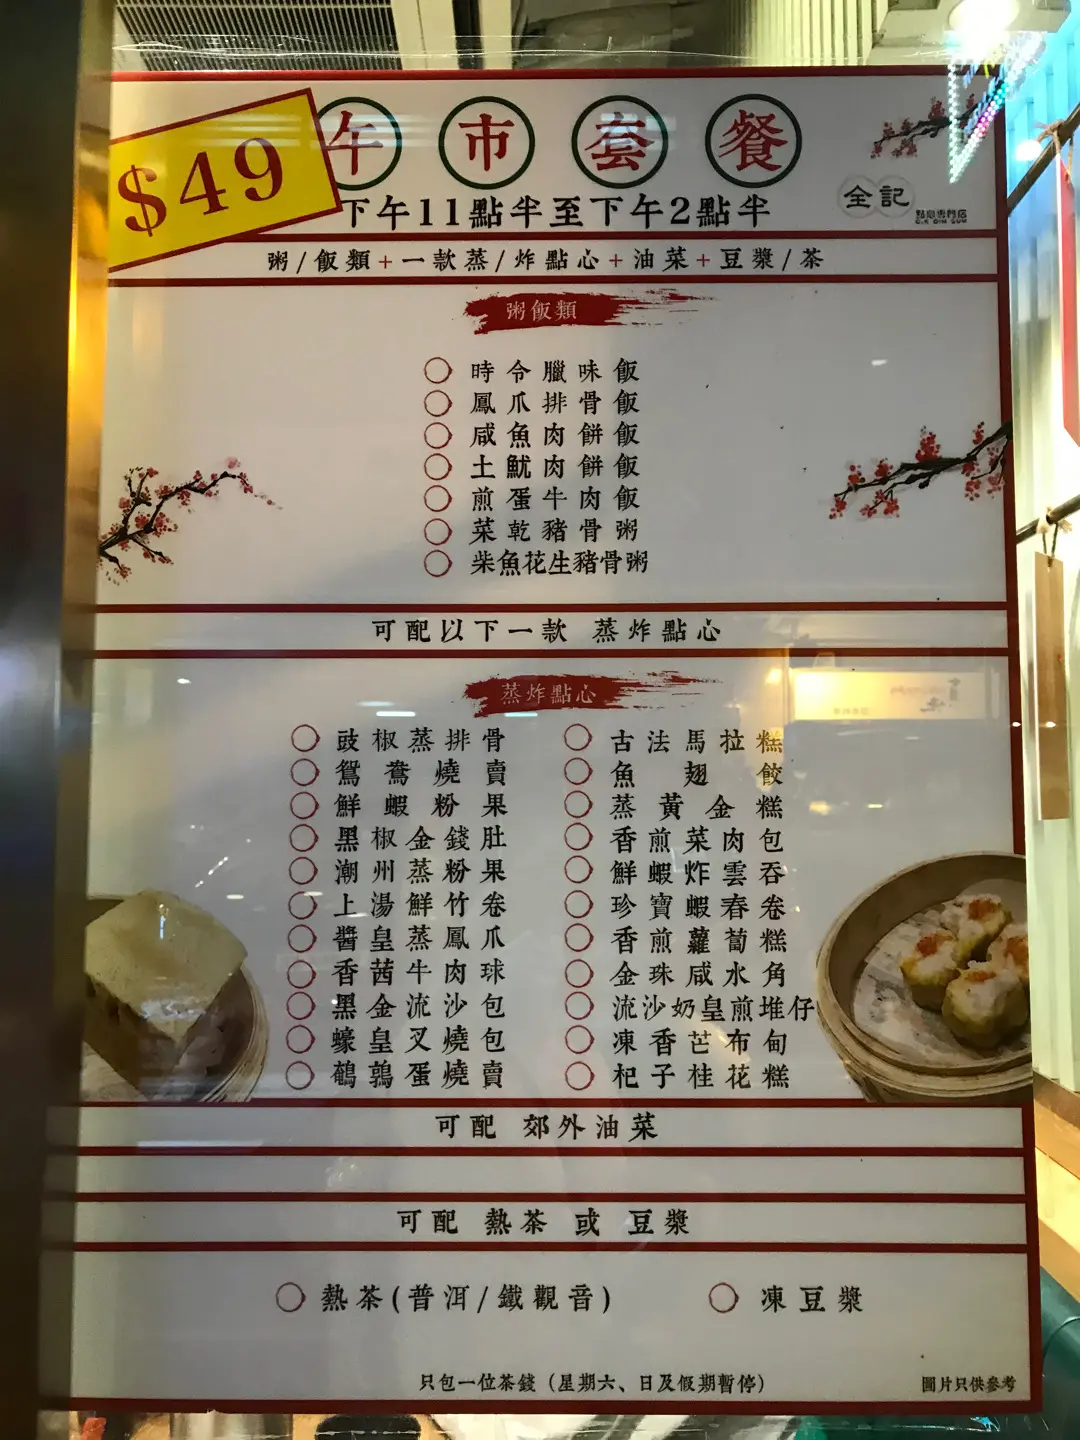 $49
午市套餐
下午11點半至下午2點半
全記
點心專門店
粥/飯類+一款蒸/炸點心+油菜+豆漿/茶
粥飯類
時令臘味飯
鳳爪排骨飯
咸魚肉餅飯
土魷肉餅飯
煎蛋牛肉飯
菜乾豬骨粥
柴魚花生豬骨粥
可配以下一款 蒸炸點心
蒸炸點心
豉椒蒸排骨
鴛鴦燒賣
鮮蝦粉果
黑椒金錢肚
潮州蒸粉果
上湯鮮竹卷
醬皇蒸鳳爪
香茜牛肉球
黑金流沙包
蠔皇叉燒包
鵪鶉蛋燒賣
古法馬拉糕
魚翅餃
蒸黃金糕
香煎菜肉包
鮮蝦炸雲吞
珍寶蝦春卷
香煎蘿蔔糕
金珠咸水角
流沙奶皇煎堆仔
凍香芒布甸
杞子桂花糕
可配 郊外油菜
可配 熱茶 或 豆漿
熱茶(普洱/鐵觀音)
凍豆漿
只包一位茶錢（星期六、日及假期暫停）
圖片只供參考